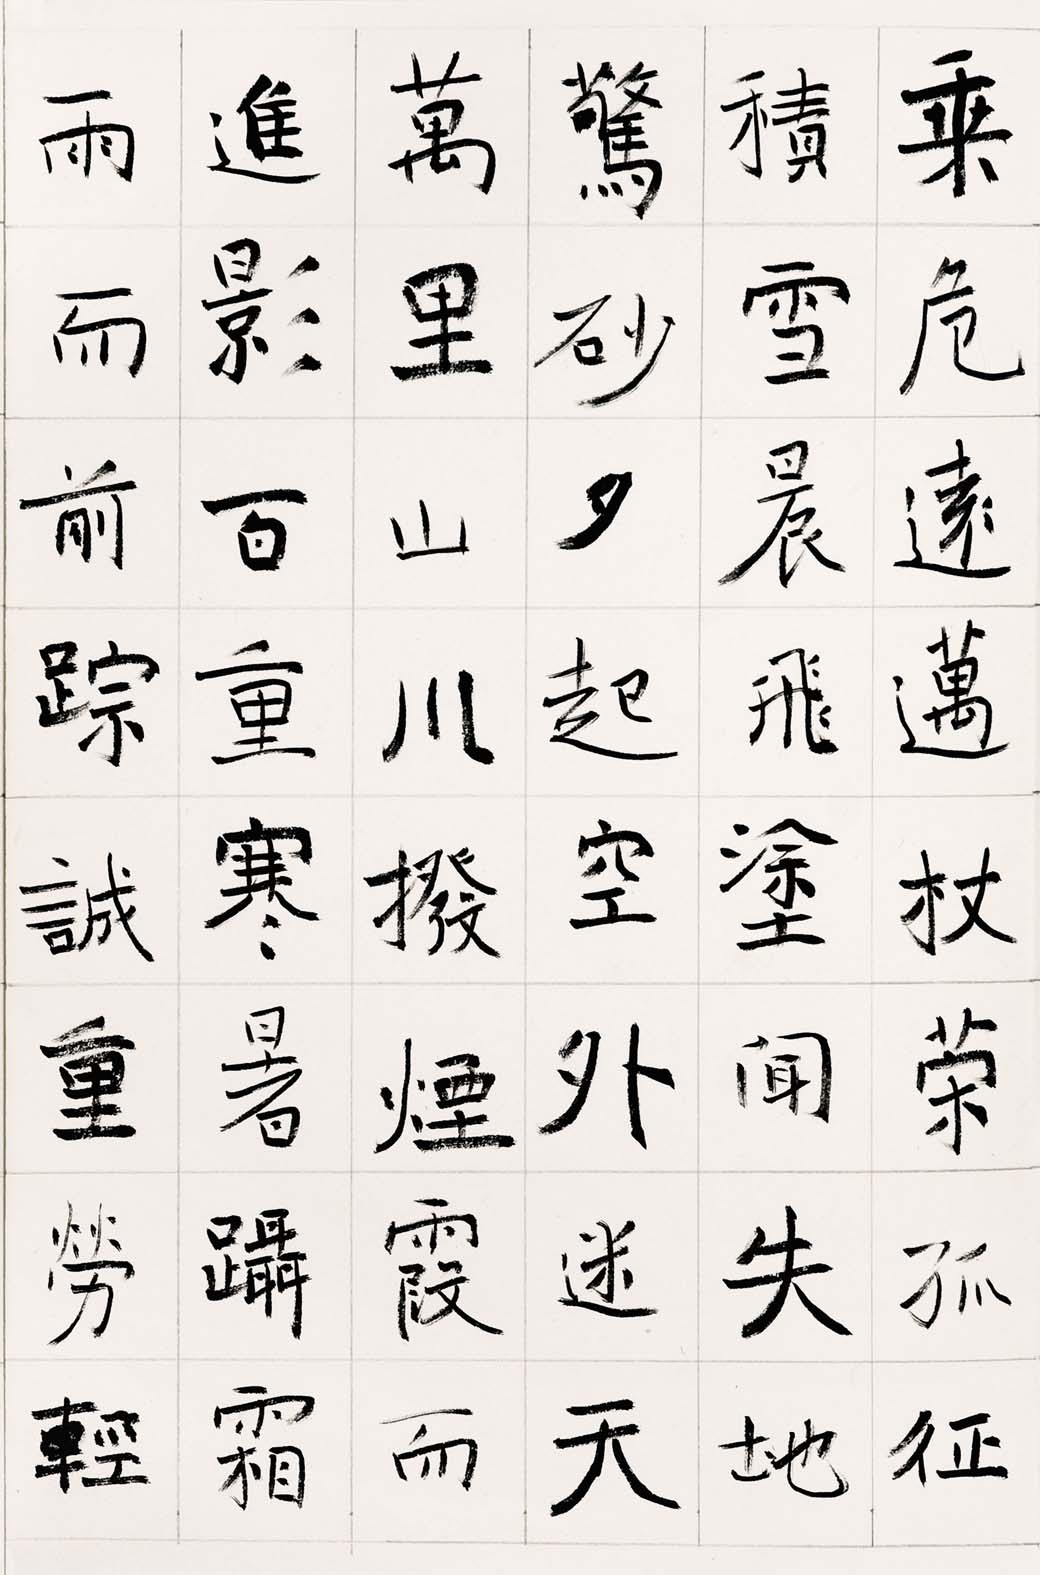 乘危遠邁杖荣孤征
積雪晨飛塗闻失地
驚砂夕起空外迷天
萬里山川撥煙霞而
進影百重寒暑躡霜
雨而前踪誠重勞輕